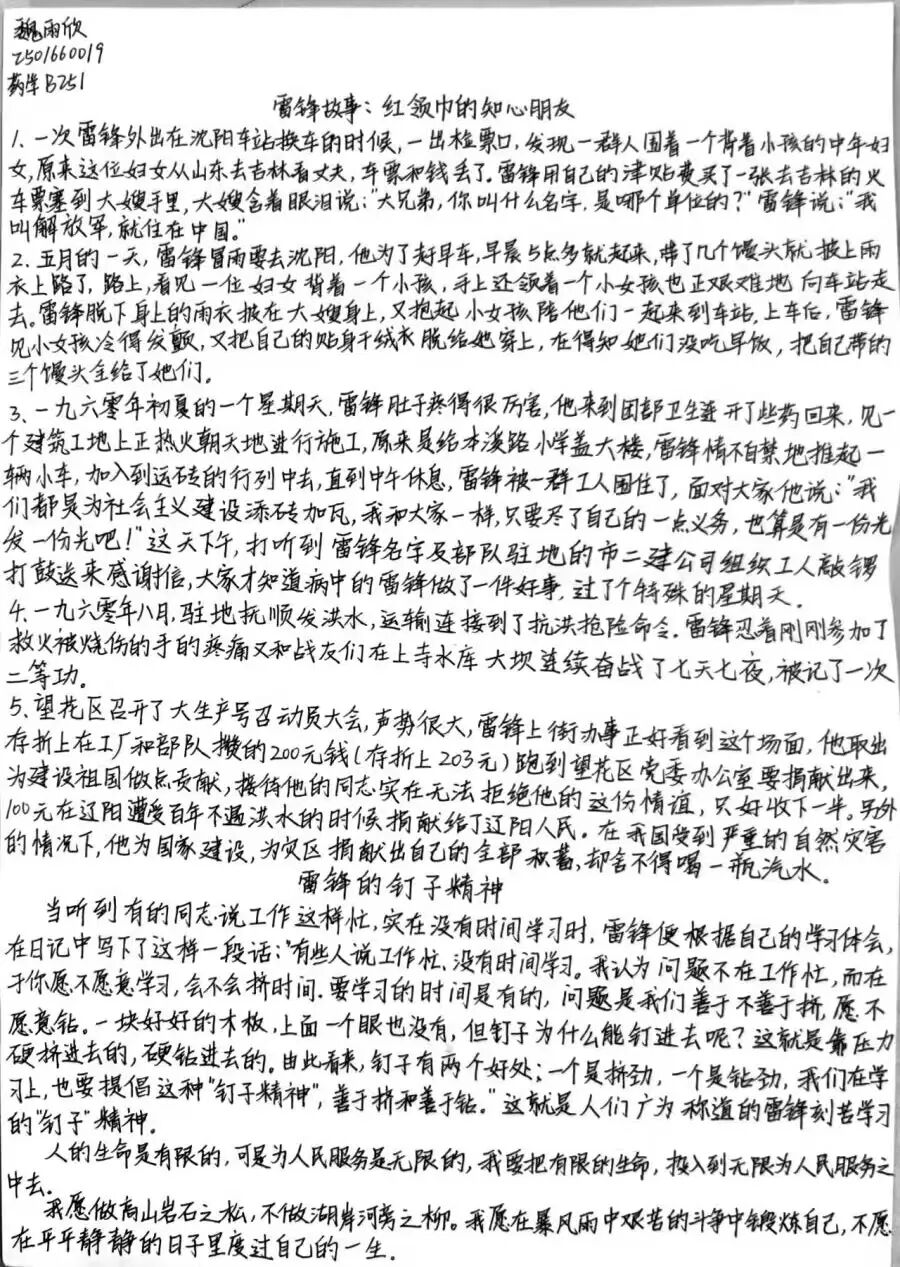 魏雨欣
2501660019
药学B251
雷锋故事：红领巾的知心朋友
1、一次雷锋外出在沈阳车站换车的时候，一出检票口，发现一群人围着一个背着小孩的中年妇
女，原来这位妇女从山东去吉林看丈夫，车票和钱丢了。雷锋用自己的津贴费买了一张去吉林的火
车票塞到大嫂手里，大嫂含着眼泪说："大兄弟，你叫什么名字，是哪个单位的？"雷锋说："我
叫解放军，就住在中国。"
2、五月的一天，雷锋冒雨要去沈阳，他为了赶早车，早晨5点多就起来，带了几个馒头就披上雨
衣上路了，路上，看见一位妇女背着一个小孩，手上还领着一个小女孩也正艰难地向车站走
去。雷锋脱下身上的雨衣披在大嫂身上，又抱起小女孩陪他们一起来到车站，上车后，雷锋
见小女孩冷得发颤，又把自己的贴身干绒衣脱给她穿上，在得知她们没吃早饭，把自己带的
三个馒头全给了她们。
3、一九六零年初夏的一个星期天，雷锋肚子疼得很厉害，他来到团部卫生连开了些药回来，见一
个建筑工地上正热火朝天地进行施工，原来是给本溪路小学盖大楼，雷锋情不自禁地推起一
辆小车，加入到运砖的行列中去，直到中午休息，雷锋被一群工人围住了，面对大家他说："我
们都是为社会主义建设添砖加瓦，我和大家一样，只要尽了自己的一点义务，也算是有一份光
发一份光吧！"这天下午，打听到雷锋名字及部队驻地的市二建公司组织工人敲锣
打鼓送来感谢信，大家才知道病中的雷锋做了一件好事，过了个特殊的星期天。
4、一九六零年八月，驻地抚顺发洪水，运输连接到了抗洪抢险命令。雷锋忍着刚刚参加了
救火被烧伤的手的疼痛又和战友们在上寺水库大坝连续奋战了七天七夜，被记了一次
二等功。
5、望花区召开了大生产号召动员大会，声势很大，雷锋上街办事正好看到这个场面，他取出
存折上在工厂和部队攒的200元钱(存折上203元)跑到望花区党委办公室要捐献出来，
为建设祖国做点贡献，接待他的同志实在无法拒绝他的这份情谊，只好收下一半。另外
100元在辽阳遭受百年不遇洪水的时候捐献给了辽阳人民。在我国受到严重的自然灾害
的情况下，他为国家建设，为灾区捐献出自己的全部积蓄，却舍不得喝一瓶汽水。
雷锋的钉子精神
当听到有的同志说工作这样忙，实在没有时间学习时，雷锋便根据自己的学习体会，
在日记中写下了这样一段话："有些人说工作忙、没有时间学习。我认为问题不在工作忙，而在
于你愿不愿意学习，会不会挤时间。要学习的时间是有的，问题是我们善于不善于挤，愿不
愿意钻。一块好好的木板，上面一个眼也没有，但钉子为什么能钉进去呢？这就是靠压力
硬挤进去的，硬钻进去的。由此看来，钉子有两个好处：一个是挤劲，一个是钻劲，我们在学
习上，也要提倡这种"钉子精神"，善于挤和善于钻。"这就是人们广为称道的雷锋刻苦学习
的"钉子"精神。
人的生命是有限的，可是为人民服务是无限的，我要把有限的生命，投入到无限为人民服务之
中去。
我愿做高山岩石之松，不做湖岸河旁之柳。我愿在暴风雨中艰苦的斗争中锻炼自己，不愿
在平平静静的日子里度过自己的一生。